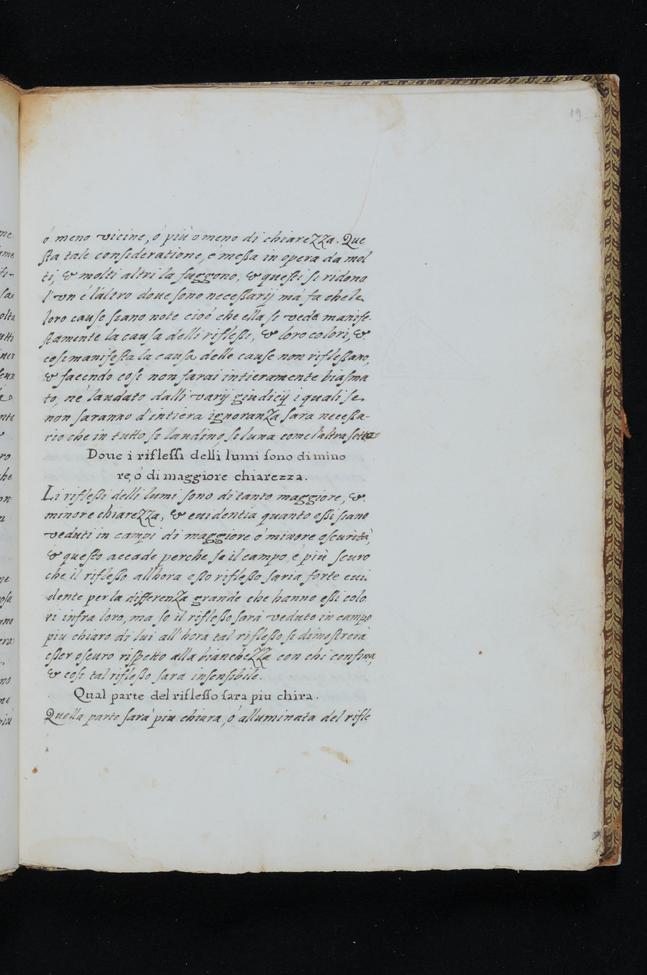 19
ò meno vicine, ò più ò meno di chiarezza. Que
sta tale consideratione, è messa in opera da mol
ti, & molti altri la fuggono, & questi si ridono
l'vn è l'altro doue sono necessarij mà, fa che le
loro cause siano note cioè che ella si veda manife-
stamente la causa delli riflessi, & loro colori, &
cosi manifesta la causa delle cause non riflessano,
& facendo cosi non farai intieramente biasma
to, nè laudato dalli varij giudicij i quali se
non saranno d'intiera ignoranza sara necessa-
rio che in tutto si laudino, si luna come l'altra setta
Doue i riflessi delli lumi sono di mino
re, ò di maggiore chiarezza.
Li riflessi delli lumi sono di tanto maggiore, &
minore chiarezza, & euidentia quanto essi siano
veduti in campi di maggiore ò minore oscurità,
& questo accade perche se il campo, è più scuro
che il riflesso all'hora esso riflesso saria forte eui
dente per la differenza grande che hanno essi colo
ri infra loro, ma se il riflesso sarà veduto in campo
piu chiaro di lui all'hora tal riflesso si dimostrerà
esser oscuro rispetto alla bianchezza con chi confina,
& cosi tal riflesso sara insensibile.
Qual parte del riflesso sara piu chira.
Quella parte sarà piu chiara, ò alluminata del rifle